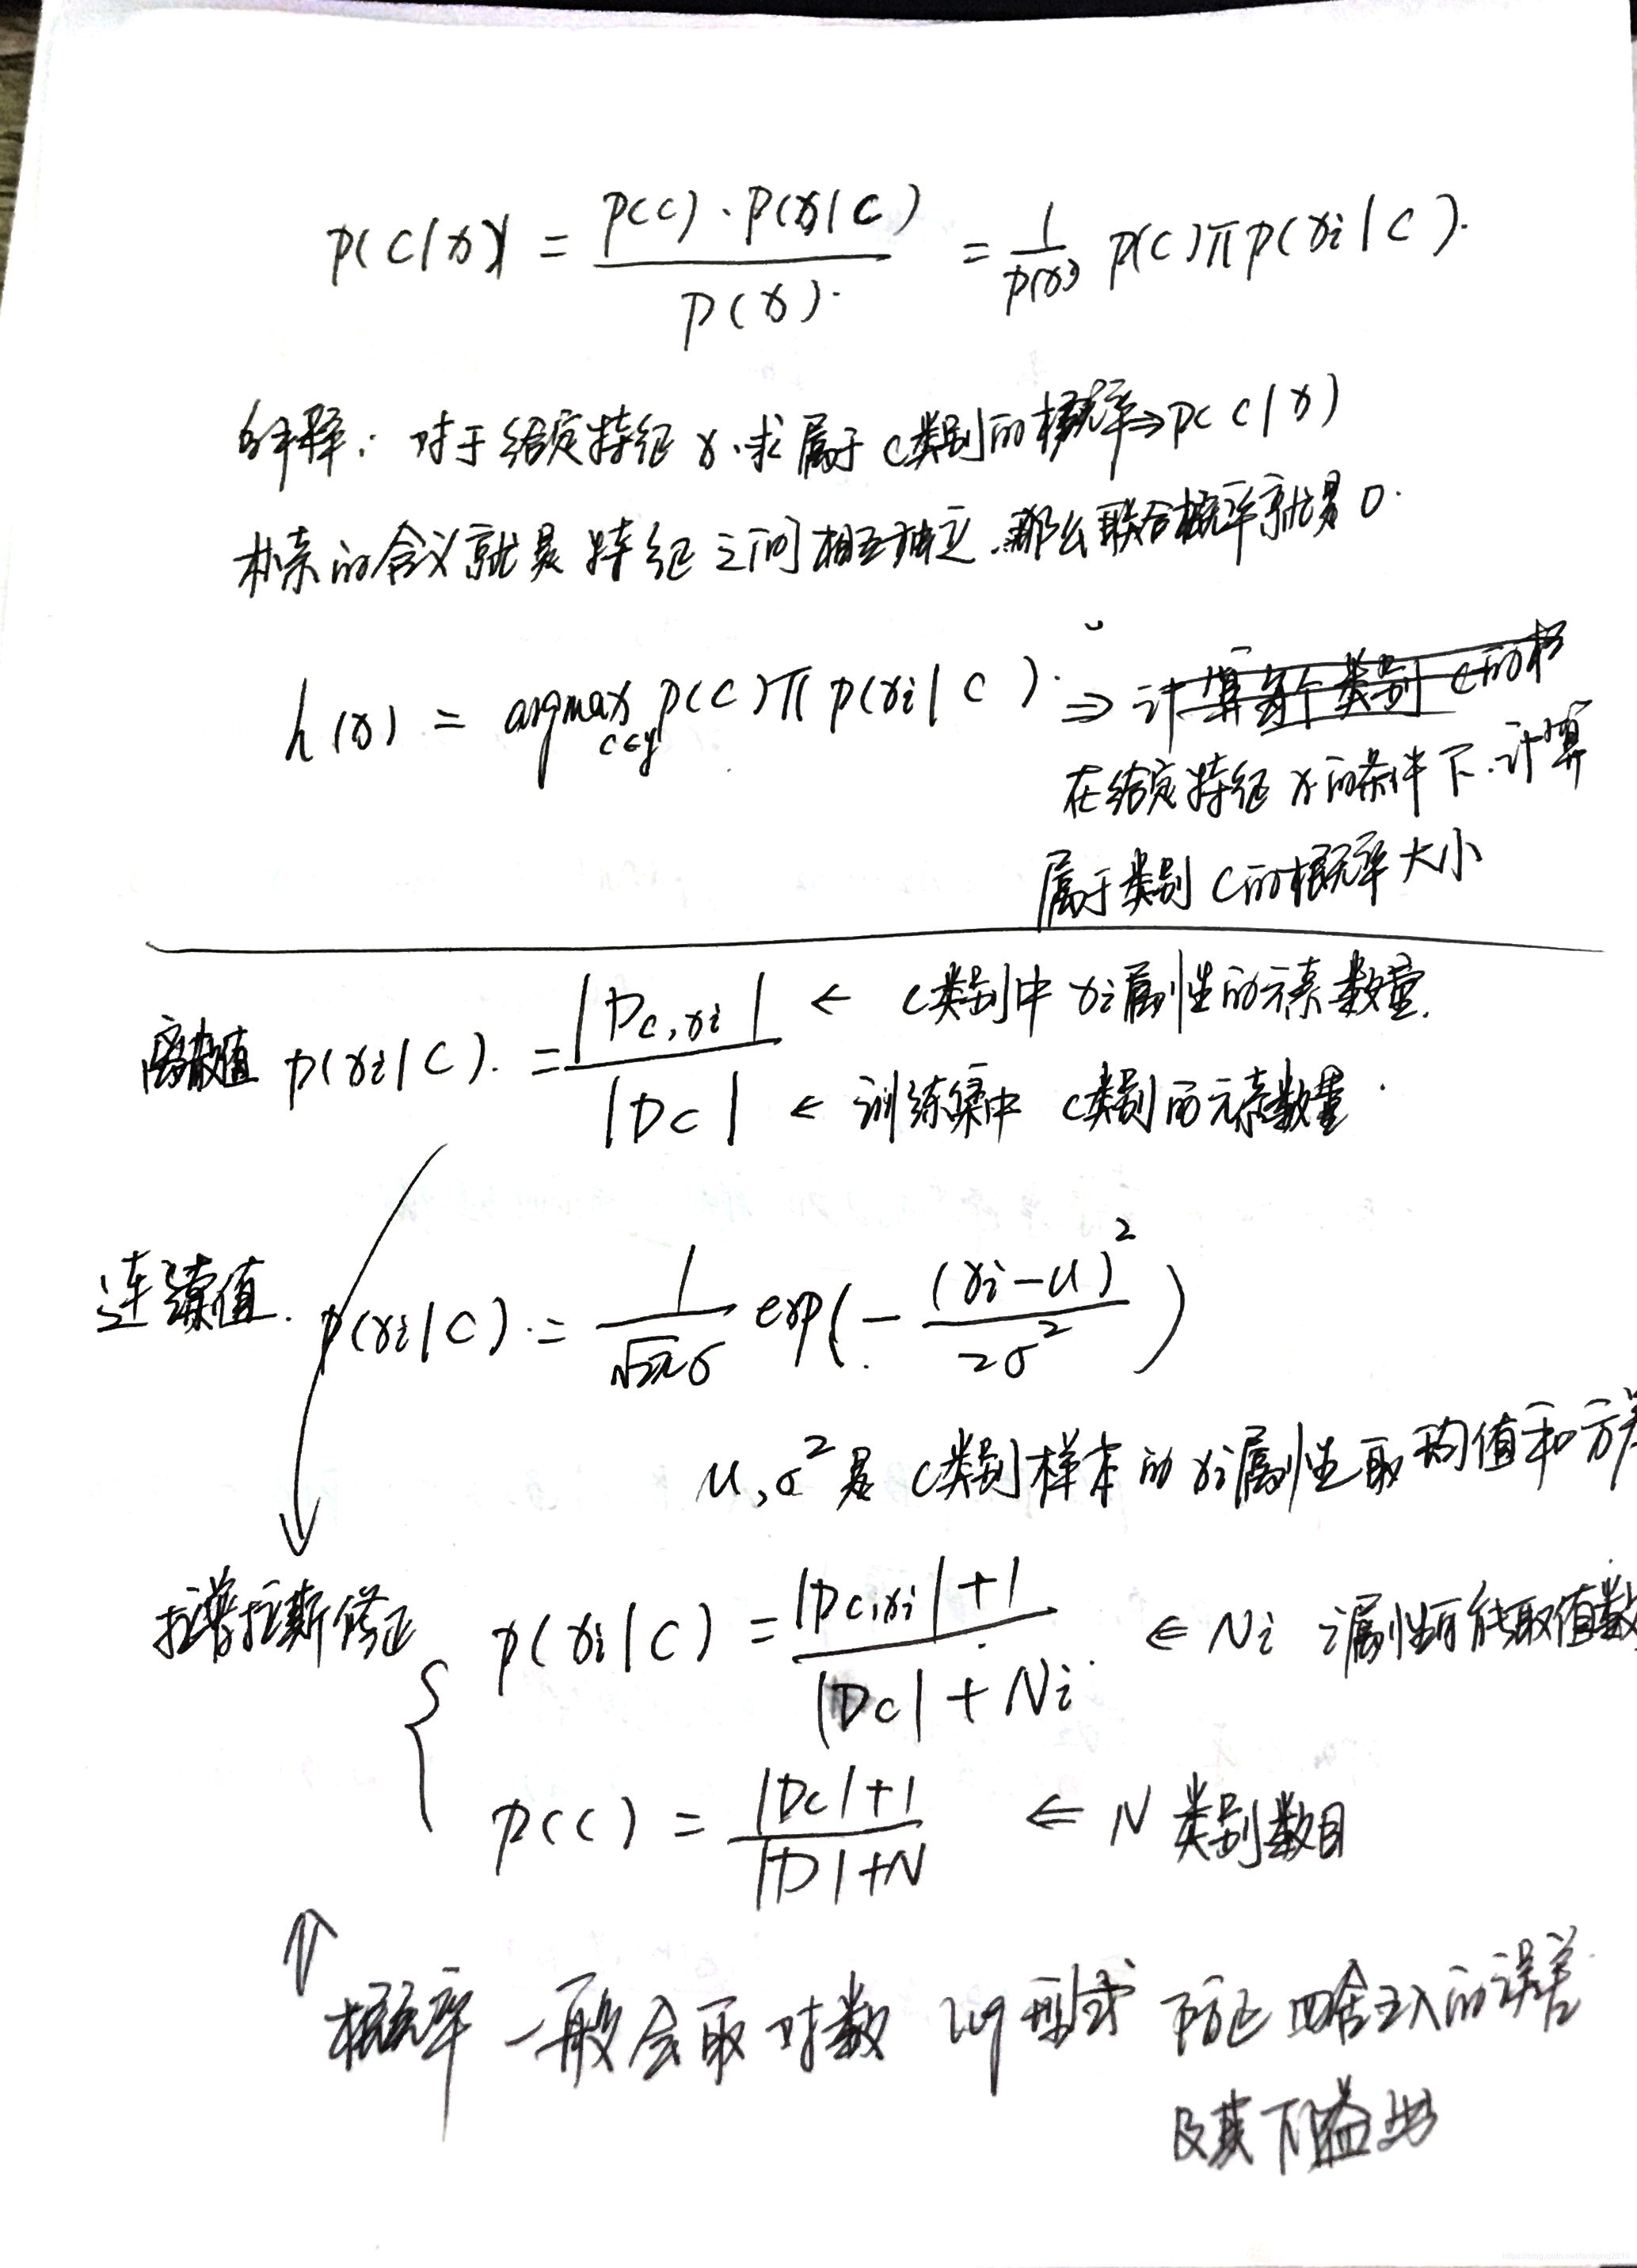 P(C|x) = P(C)·P(x|C) / P(x) = 1/P(x) P(C)π P(xi|C).
解释: 对于给定特征 x,求属于 C类别的概率⇒P(C|x)
朴素的含义就是特征之间相互独立,那么联合概率就是 0.
h(x) = argmax P(C)π P(xi|C). ⇒ 计算每个类别 C的概
c∈y
在给定特征 x 的条件下,计算
属于类别 C的概率大小
离散值 P(xi|C). = |Dc,xi| / |Dc|
← C类别中 xi属性的元素数量.
← 训练集中 C类别的元素数量.
连续值. P(xi|C). = 1/√2πσ exp(- (xi-u)² / 2σ²)
u,σ²是 C类别样本的 xi属性取均值和方差
拉普拉斯修正 P(xi|C) = |Dc,xi|+1 / |Dc|+Ni ← Ni i属性可能取值数
P(C) = |Dc|+1 / |D|+N ← N 类别数目
⇑
概率一般会取对数 log 形式 防止四舍五入的误差
及其下溢出